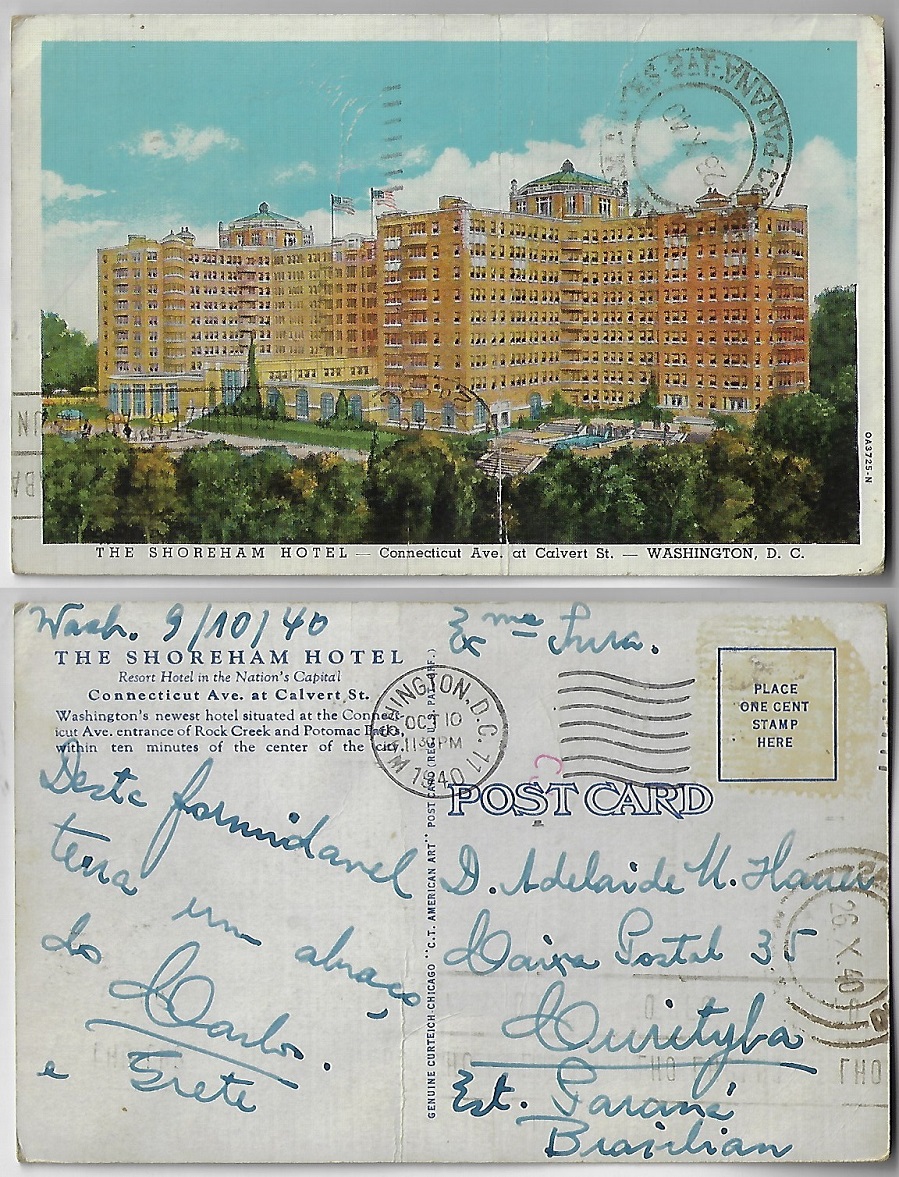 THE SHOREHAM HOTEL — Connecticut Ave. at Calvert St. — WASHINGTON, D. C.
OA3725-N
Wash. 9/10/40
THE SHOREHAM HOTEL
Resort Hotel in the Nation's Capital
Connecticut Ave. at Calvert St.
Washington's newest hotel situated at the Connect-
icut Ave. entrance of Rock Creek and Potomac Parks,
within ten minutes of the center of the city.
Deste formidavel
terra um abraço
do Carlos.
e Grete
GENUINE CURTEICH-CHICAGO "C.T. AMERICAN ART" POST CARD (REG. U.S. PAT. OFF.)
WASHINGTON, D.C. 11
OCT 10
11 30 PM
1940
PLACE
ONE CENT
STAMP
HERE
POST CARD
Exme Snra.
D. Adelaide
Caixa Postal 35
Curityba
Est. Paraná
Brasilian
26 X 40